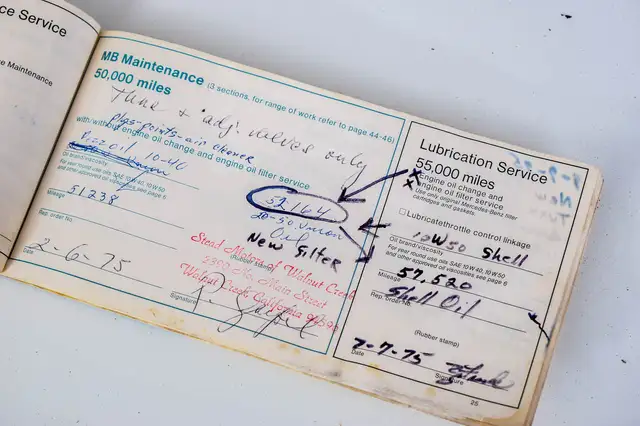 ce Service
e Maintenance
MB Maintenance (3 sections, for range of work refer to page 44-46)
50,000 miles
Tune + adj. valves only
plgs-points-air cleaner
with/without engine oil change and engine oil filter service
10-40
Oil brand/viscosity
For year round use oils SAE 10W40, 10W50
and other approved oil viscosities see page 6
51238
Mileage
Rep. order No.
2-6-75
Date
52164
20-50 Union
Oil
New Filter
Stead Motors of Walnut Creek
Main Street
Walnut Creek, California
Signature
Lubrication Service
55,000 miles
x Engine oil change and
x engine oil filter service
Use only original Mercedes-Benz filter
cartridges and gaskets.
Lubricate throttle control linkage
10W50 Shell
Oil brand/viscosity
For year round use oils SAE 10W40, 10W50
and other approved oil viscosities see page 6
57,520
Mileage
Shell Oil
Rep. Order No.
(Rubber stamp)
7-7-75
Date
Signature
25